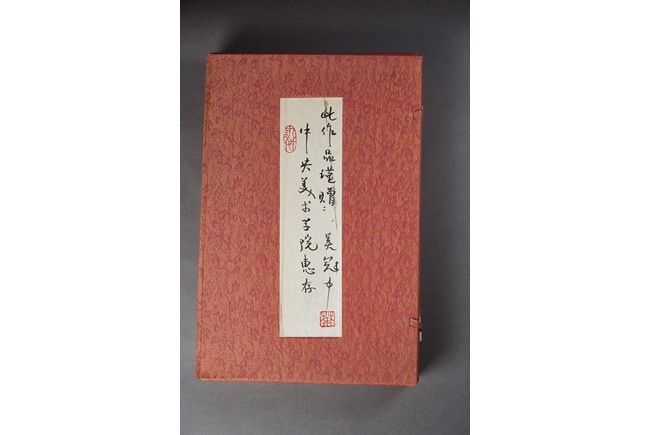 此作品谨赠 吴冠中
中央美术学院惠存